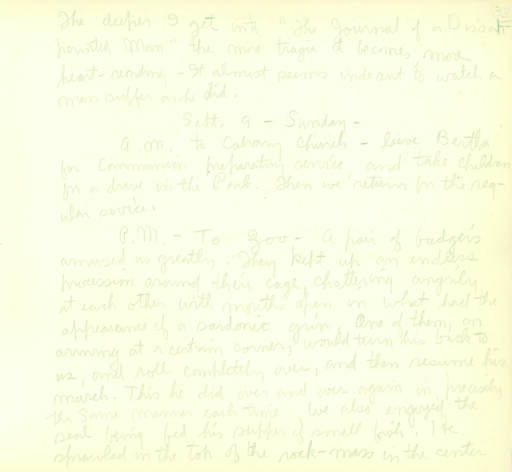 The deeper I get into "The Journal of a Disap-
pointed Man" the more tragic it becomes, more
heart-rending - It almost seems indecent to watch a
man suffer as he did.
Sept. 9 - Sunday -
A.M. to Calvary Church - leave Bertha
for Communion preparatory service and take children
for a drive in the Park. Then we return for the reg-
ular service.
P.M. - To Zoo - A pair of badgers
amused us greatly. They kept up an endless
procession around their cage, chattering angrily
at each other with mouths open in what had the
appearance of a sardonic grin. One of them, on
arriving at a certain corner, would turn his back to
us, and roll completely over, and then resume his
march. This he did over and over again in precisely
the same manner each time. We also enjoyed the
seal being fed his supper of small fish. He
sprawled in the top of the rock-mass in the center